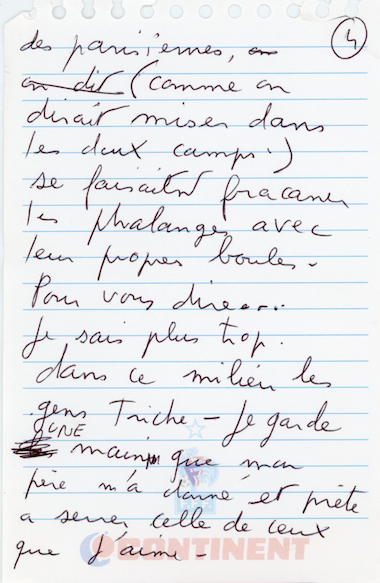 4
des parisiennes, on
on dit (comme on
dirait miser dans
les deux camps.)
se faisaient fracasser
les phalanges avec
leur propres boules.
Pour vous dire....
Je sais plus trop.
dans ce milieu les
gens Triche - Je garde
UNE
main que mon
père m'a donné et prête
a serrer celle de ceux
que J'aime -
CONTINENT